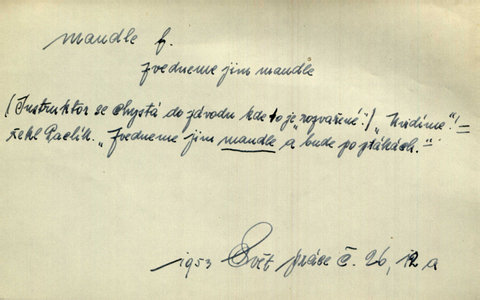 mandle f.
Zvedneme jim mandle
(Instruktor se chystá do závodu kde to je „rozvařené“:) „Uvidíme“! =
řekl Pavlík. „Zvedneme jim mandle a bude po ptákách.“ =
1953 Svět práce č. 26, 12 a